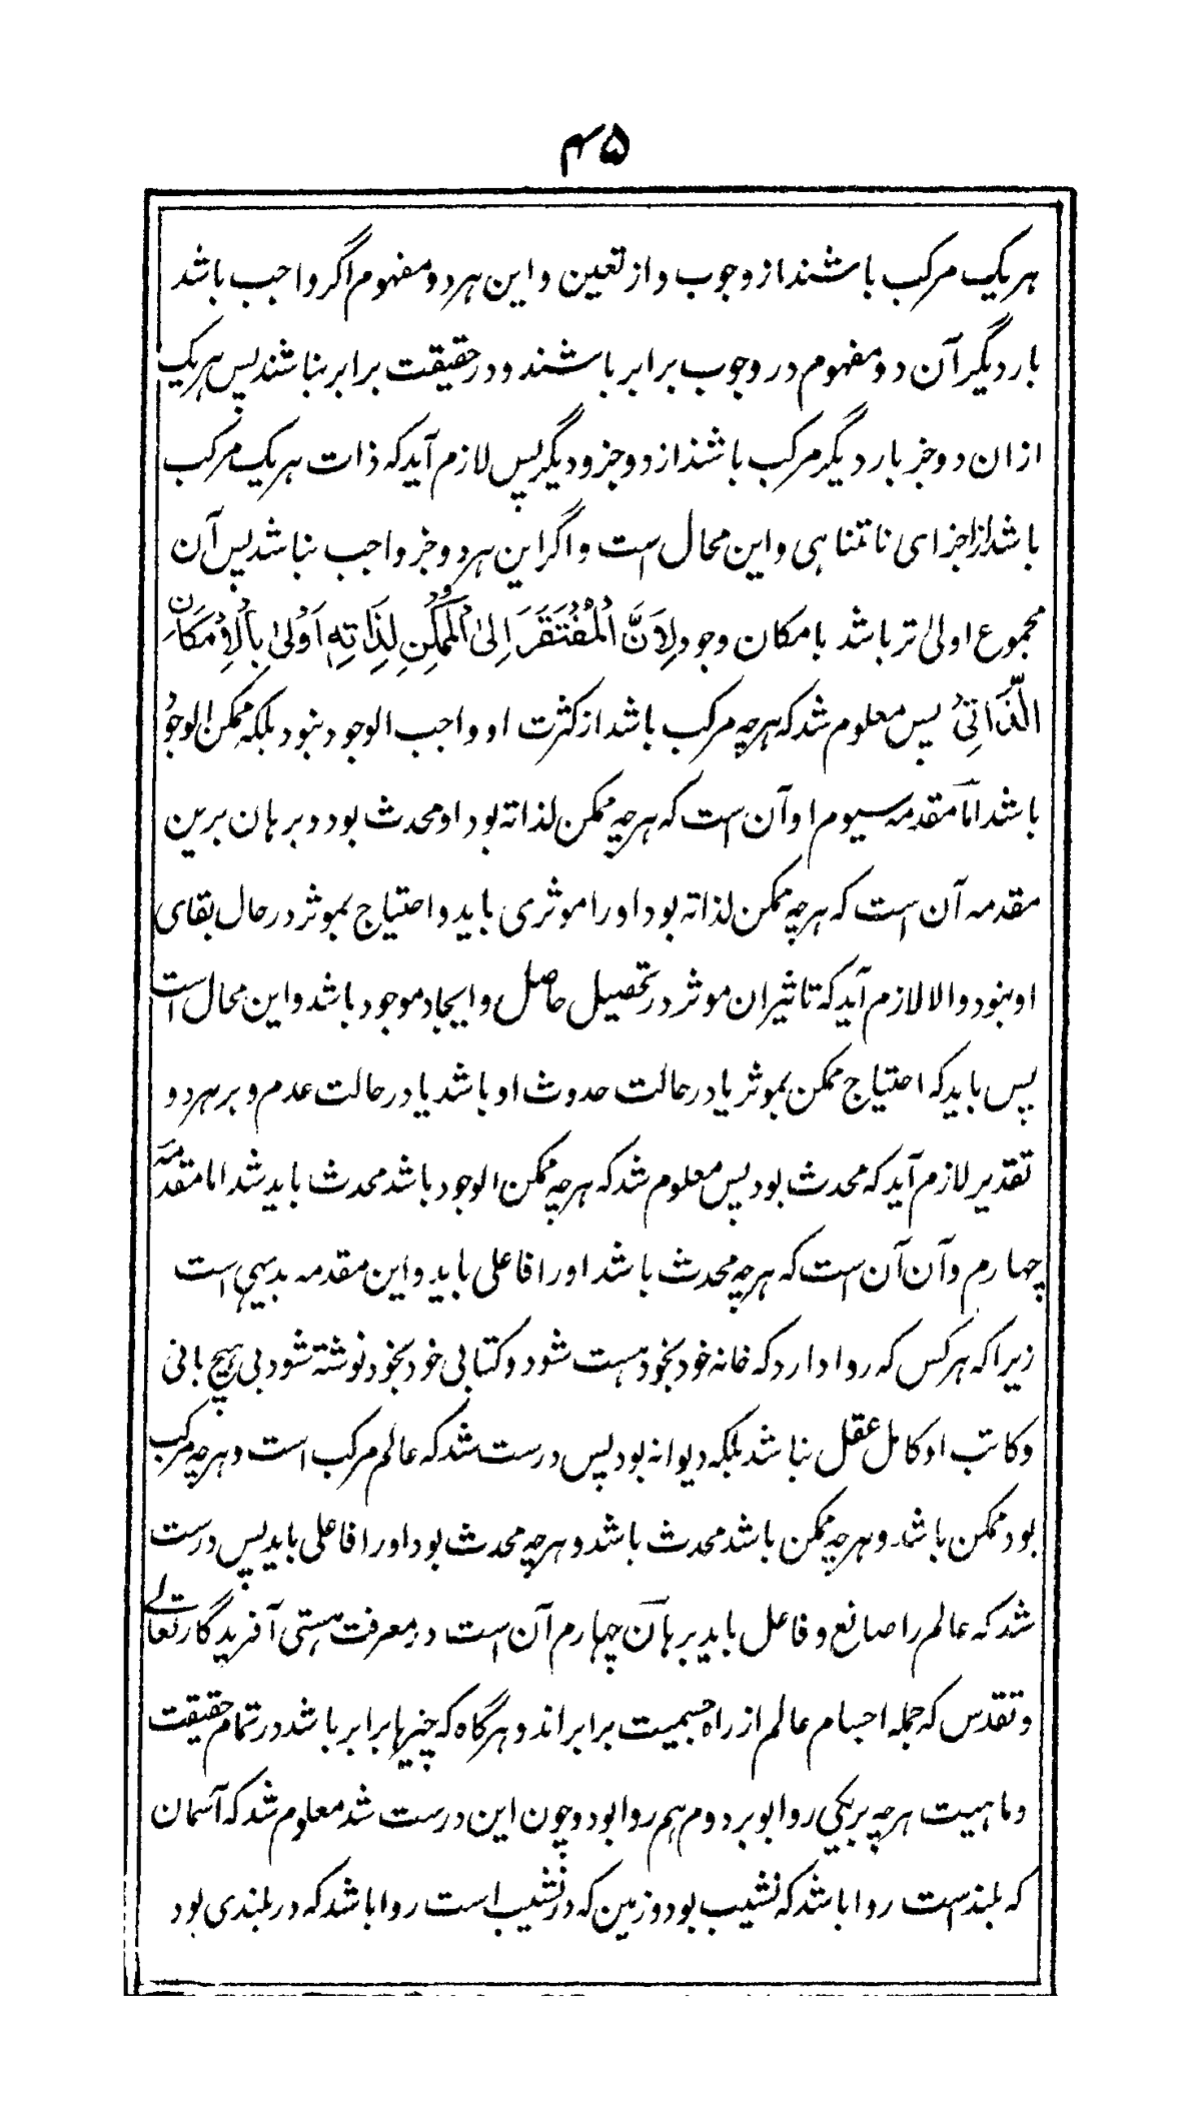 ۴۵
هریک مرکب باشند از وجوب و از تعین و این هر دو مفهوم اگر واجب باشد
بار دیگر آن دو مفهوم در وجوب برابر باشند و در حقیقت برابر نباشند پس هریک
ازان دو جزء بار دیگر مرکب باشند از دو جزو دیگر پس لازم آید که ذات هریک مرکب
باشد از اجزای نامتناهی و این محال است و اگر این هر دو جزء واجب نباشد پس آن
مجموع اولیٰ تر باشد بامکان وجود لِاَنَّ الْمُفْتَقَرَ اِلیٰ الْمُمْکِنِ لِذَاتِهٖ اَوْلیٰ بِالْاِمْکَانِ
الذَّاتِیْ پس معلوم شد که هرچه مرکب باشد از کثرت او واجب الوجود نبود بلکه ممکن الوجود
باشد اما مقدمه سیوم او آن ست که هرچه ممکن لذاته بود او محدث بود و برهان برین
مقدمه آن ست که هرچه ممکن لذاته بود او را موثری باید و احتیاج بموثر در حال بقای
او نبود والا لازم آید که تاثیر ان موثر در تحصیل حاصل و ایجاد موجود باشد و این محال است
پس باید که احتیاج ممکن بموثر یا در حالت حدوث او باشد یا در حالت عدم و بر هر دو
تقدیر لازم آید که محدث بود پس معلوم شد که هرچه ممکن الوجود باشد محدث باید شد اما مقدمه
چهارم و آن آن ست که هرچه محدث باشد او را فاعلی باید و این مقدمه بدیهی است
زیرا که هر کس که روا دارد که خانه خود بخود هست شود و کتابی خود بخود نوشته شود بی هیچ بانی
و کاتب او کامل عقل نباشد بلکه دیوانه بود پس درست شد که عالم مرکب است و هرچه مرکب
بود ممکن باشد و هرچه ممکن باشد محدث باشد و هرچه محدث بود او را فاعلی باید پس درست
شد که عالم را صانع و فاعل باید برهان چهارم آن ست در معرفت هستی آفریدگار تعالے
و تقدس که جمله اجسام عالم از راه جسمیت برابر اند و هرگاه که چیزها برابر باشد در تمام حقیقت
و ماهیت هرچه بر یکی روا بو بر دوم هم روا بود و چون این درست شد معلوم شد که آسمان
که بلندست روا باشد که نشیب بود و زمین که در نشیب است روا باشد که در بلندی بود